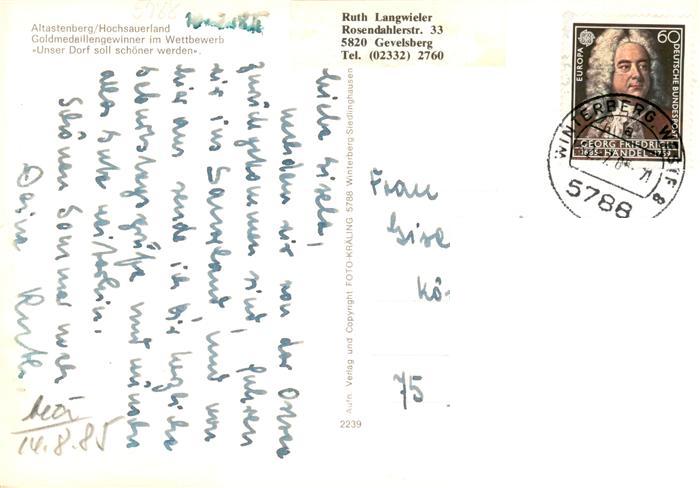 5788
Altastenberg/Hochsauerland
Goldmedaillengewinner im Wettbewerb
«Unser Dorf soll schöner werden».
Ruth Langwieler
Rosendahlerstr. 33
5820 Gevelsberg
Tel. (02332) 2760
EUROPA
60
DEUTSCHE BUNDESPOST
GEORG FRIEDRICH
HÄNDEL
1685 1759
WINTERBERG, WESTF 8
5788
Liebe Gisela,
nachdem wir von der Ostsee
zurückgekommen sind fuhren
wir ins Sauerland und von
hier aus sende ich Dir herzliche
Geburtstagsgrüße und wünsche
alles Gute weiterhin.
Schönen Sommer noch
Deine Ruth
14.8.85
Frau
Gise
Kö
75
Aufn. Verlag und Copyright FOTO-KRÄLING 5788 Winterberg-Siedlinghausen
2239